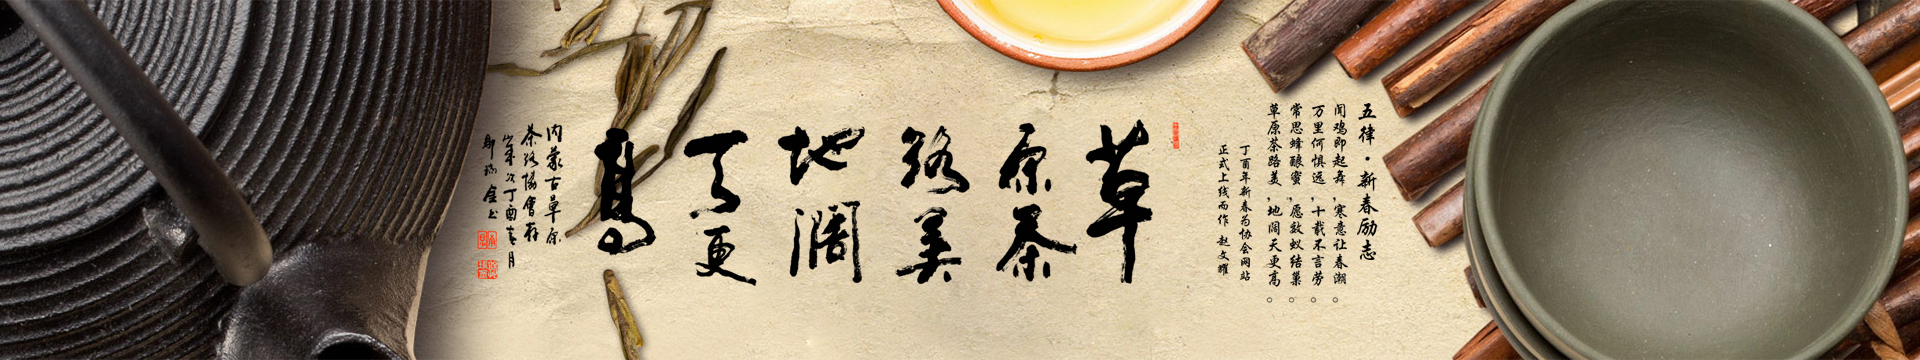 五律·新春励志
闻鸡即起舞,寒意让春潮。
万里何惧远,十载不言劳。
常思蜂酿蜜,愿效蚁结巢。
草原茶路美,地阔天更高。
丁酉年新春为协会网站
正式上线而作 赵文耀
草
原茶
路美
地阔
天更
高
内蒙古草原
茶路协会存
岁次丁酉春月